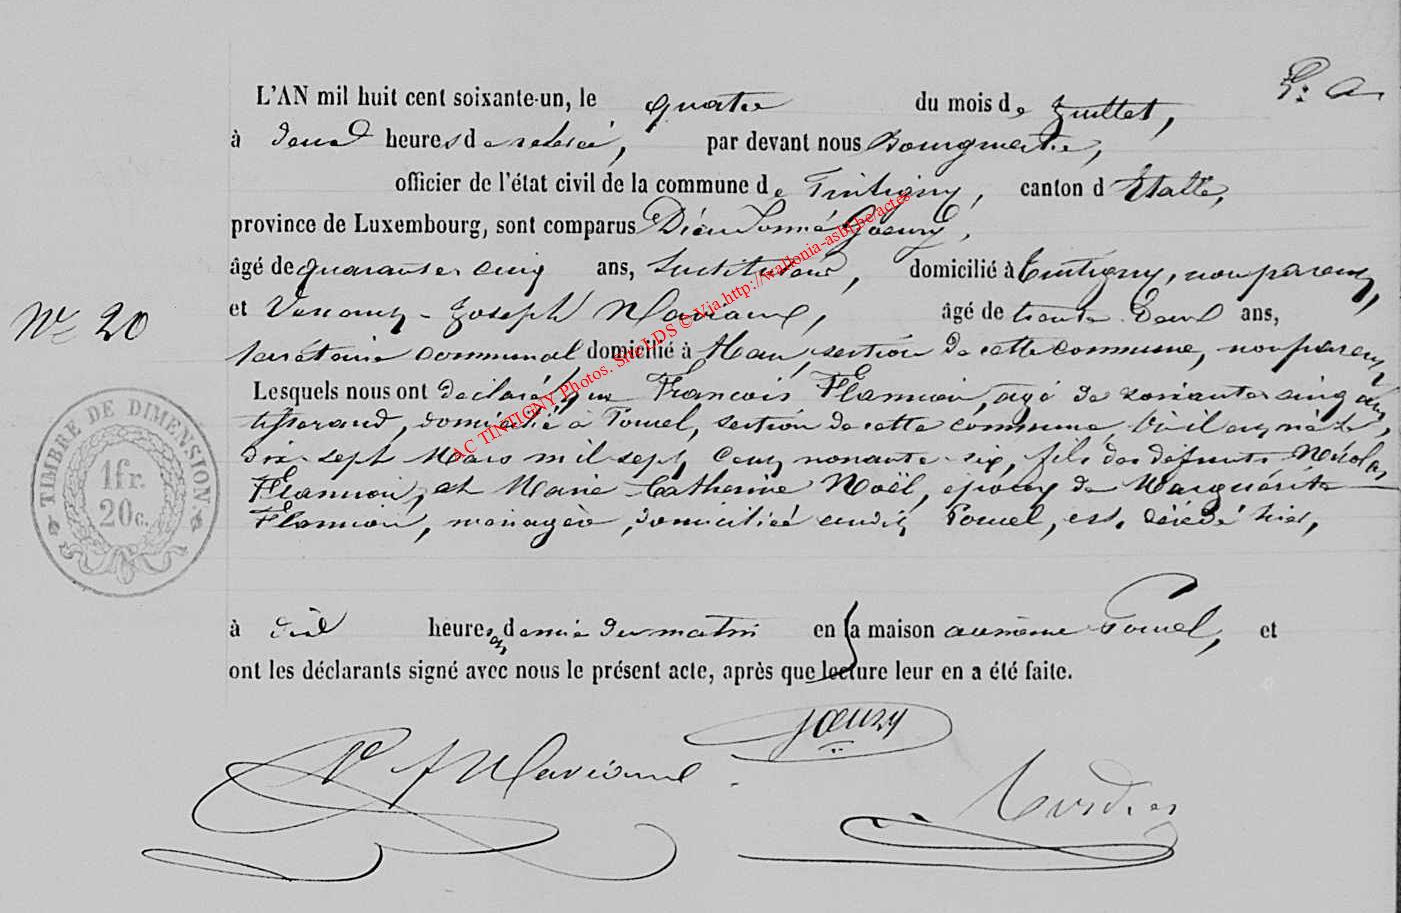 P: A
L'AN mil huit cent soixante-un, le quatre du mois de Juillet,
à deux heures de relevée, par devant nous Bourgmestre,
officier de l'état civil de la commune de Tintigny, canton d'Etalle,
province de Luxembourg, sont comparus Dieudonné Goeury,
âgé de quarante cinq ans, Instituteur, domicilié à Tintigny, non parent,
et Joseph âgé de trente deux ans,
Nº 20
secrétaire communal domicilié à Han, section de cette commune, non parent,
Lesquels nous ont déclaré que François Flamion, agé de soixante cinq ans,
tisserand, domicilié à Poncel, section de cette commune, où il est né le
dix sept Mars mil sept cent nonante-six, fils des defunts Nicolas
Flamion, et Marie-Catherine Noël, epoux de Marguérite
Flamion, menagère, domiciliée audit Poncel, est décédé hier,
à dix heures et demie du matin en sa maison au même Poncel, et
ont les déclarants signé avec nous le présent acte, après que lecture leur en a été faite.
Goeury
TIMBRE DE DIMENSION.
1 fr.
20 c.
AC TINTIGNY Photos. Site LDS © Via http://wallonia-asbl.be/actes